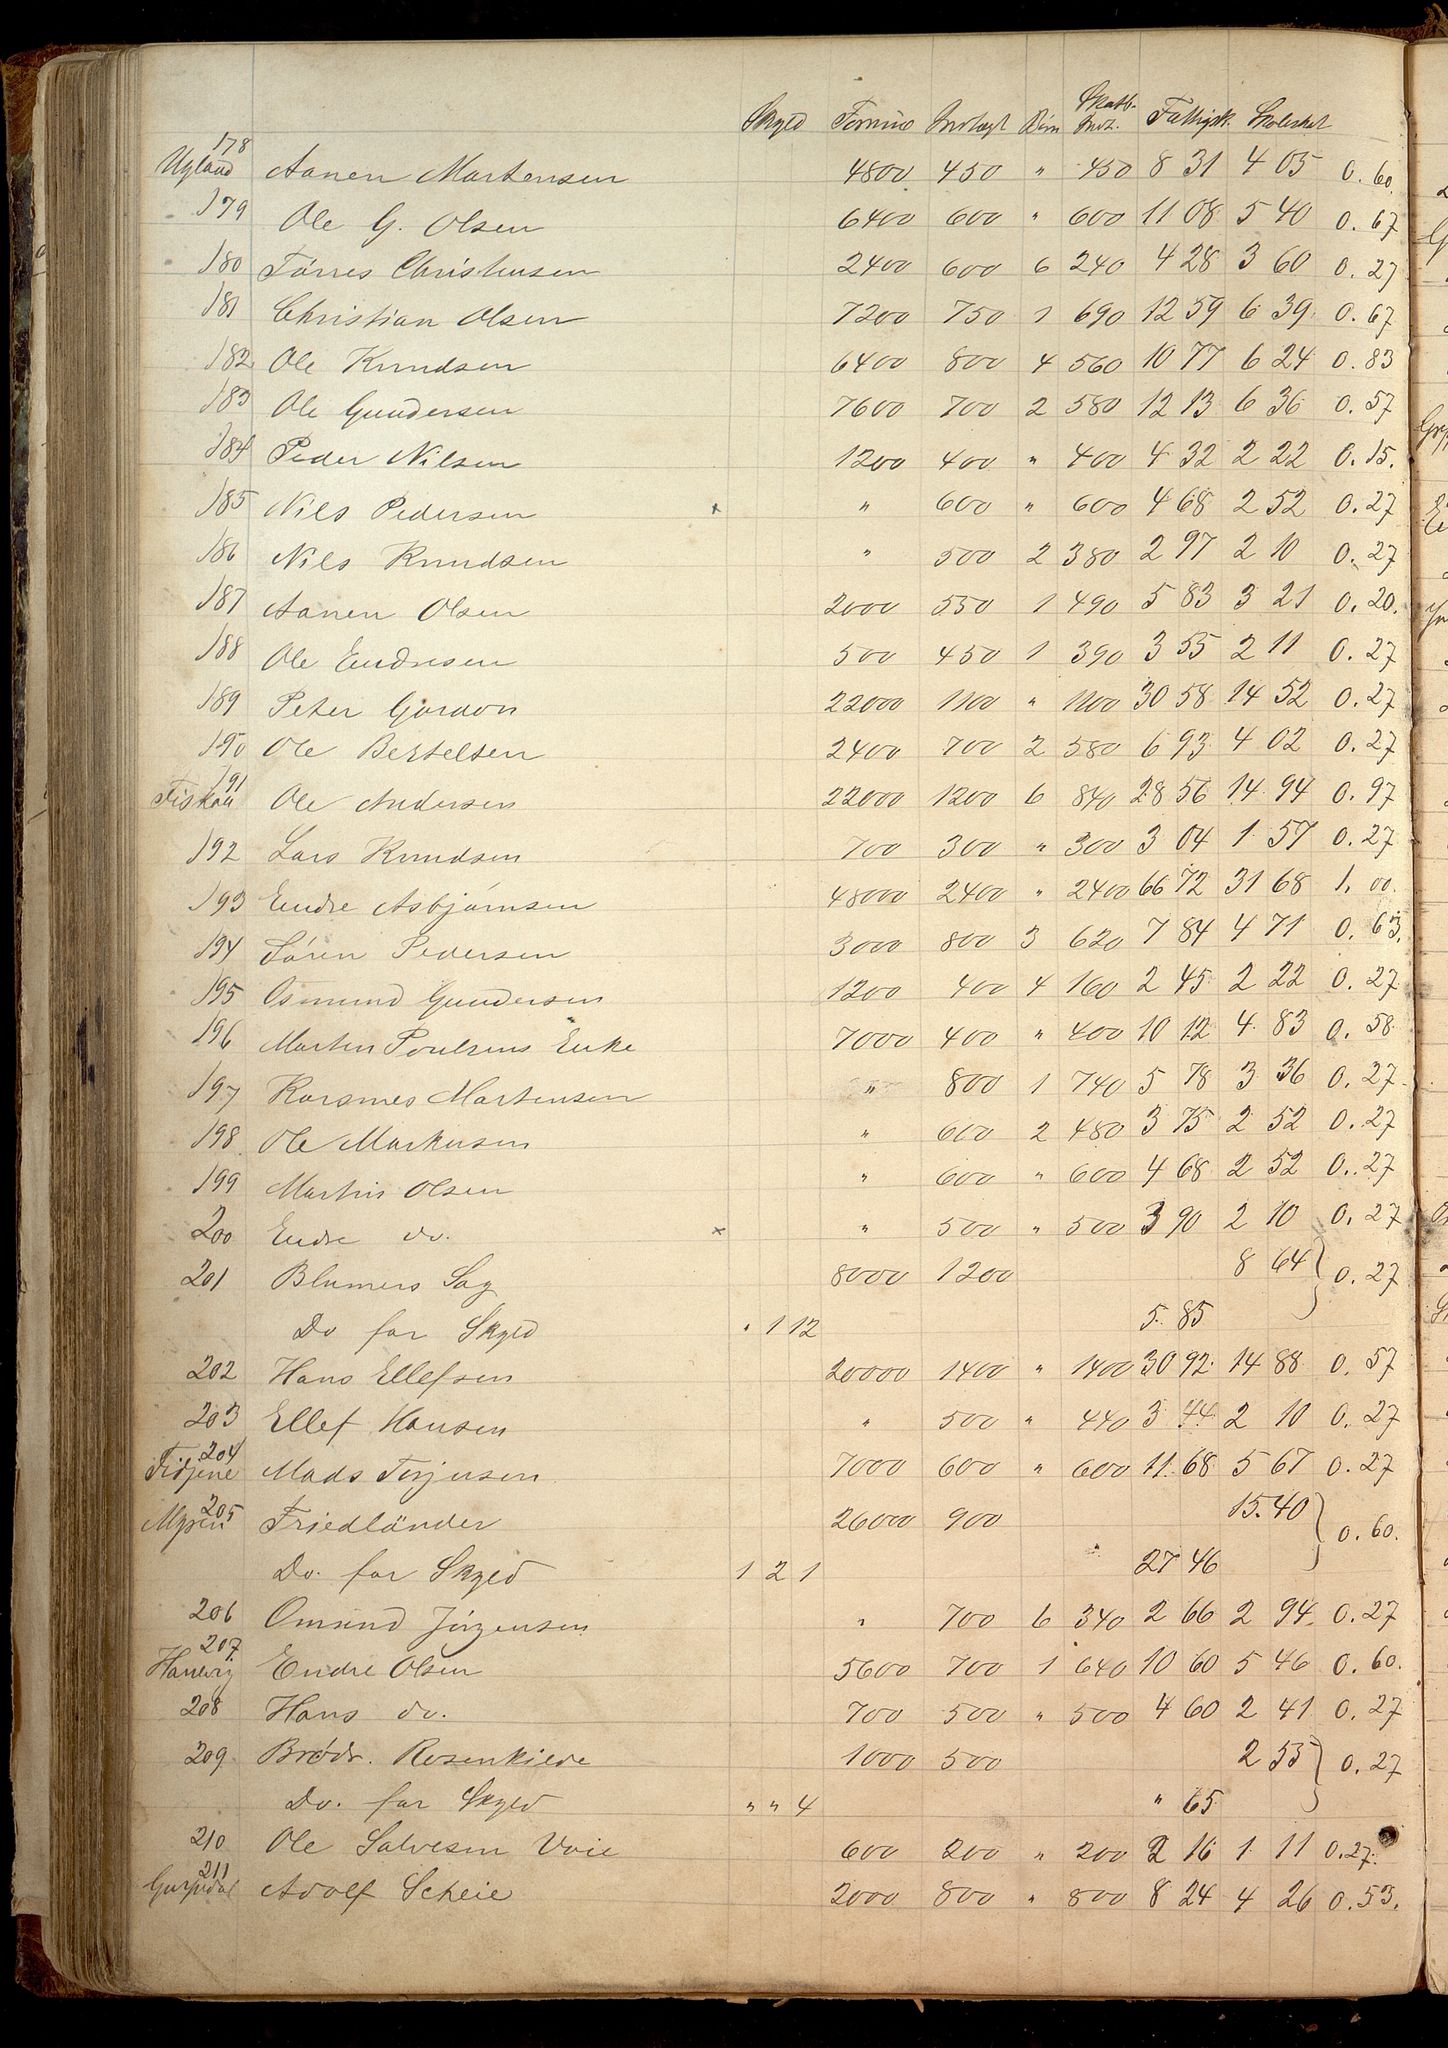 Skyld Formue Indtægt Børn Skatb. Indt. Fattigsk. Skoleskat
178 Ugland Aanen Martensen 4800 450 " 450 8 31 4 05 0.60.
179 Ole G. Olsen 6400 600 " 600 11 08 5 40 0.67
180 Tørres Christensen 2400 600 6 240 4 28 3 60 0.27
181 Christian Olsen 7200 750 1 690 12 59 6 39 0.67
182 Ole Knudsen 6400 800 4 560 10 77 6 24 0.83
183 Ole Gundersen 7600 700 2 580 12 13 6 36 0.57
184 Peder Nilsen 1200 400 " 400 4 32 2 22 0.15.
185 Nils Pedersen x " 600 " 600 4 68 2 52 0.27
186 Nils Knudsen " 500 2 380 2 97 2 10 0.27
187 Aanen Olsen 2000 550 1 490 5 83 3 21 0.20.
188 Ole Endresen 500 450 1 390 3 55 2 11 0.27
189 Peter Gordon 22000 1100 " 1100 30 58 14 52 0.27
190 Ole Bertelsen 2400 700 2 580 6 93 4 02 0.27
191 Fiskaa Ole Andersen 22000 1200 6 840 28 56 14 94 0.97
192 Lars Knudsen 700 300 " 300 3 04 1 57 0.27
193 Endre Asbjørnsen 48000 2400 " 2400 66 72 31 68 1.00.
194 Søren Pedersen 3000 800 3 620 7 84 4 71 0.63.
195 Osmund Gundersen 1200 400 4 160 2 45 2 22 0.27
196 Marten Poulsens Enke 7000 400 " 400 10 12 4 83 0.58
197 Rasmus Martensen " 800 1 740 5 78 3 36 0.27
198 Ole Markusen " 600 2 480 3 75 2 52 0.27
199 Martin Olsen " 600 " 600 4 68 2 52 0.27
200 Endre do. x " 500 " 500 3 90 2 10 0.27
201 Blumers Sag 8000 1200 8 64 } 0.27
Do for Skyld " 1 12 5. 85
202 Hans Ellefsen 20000 1400 " 1400 30 92 14 88 0.57
203 Ellef Hansen " 500 " 440 3 44 2 10 0.27
204 Fidjene Mads Terjesen 7000 600 " 600 11 68 5 67 0.27
205 Myren Friedländer 26000 900 15.40 } 0.60.
Do. for Skyld 1 2 1 27 46
206 Omund Jørgensen " 700 6 340 2 66 2 94 0.27
207. Hanevig Endre Olsen 5600 700 1 640 10 60 5 46 0.60.
208 Hans do. 700 500 " 500 4 60 2 41 0.27
209 Brødr. Rosenkilde 1000 500 2 55 } 0.27
Do. for Skyld " " 4 " 65
210 Ole Salvesen Voie 600 200 " 200 2 16 1 11 0.27.
211 Adolf Scheie 2000 800 " 800 8 24 4 26 0.53.